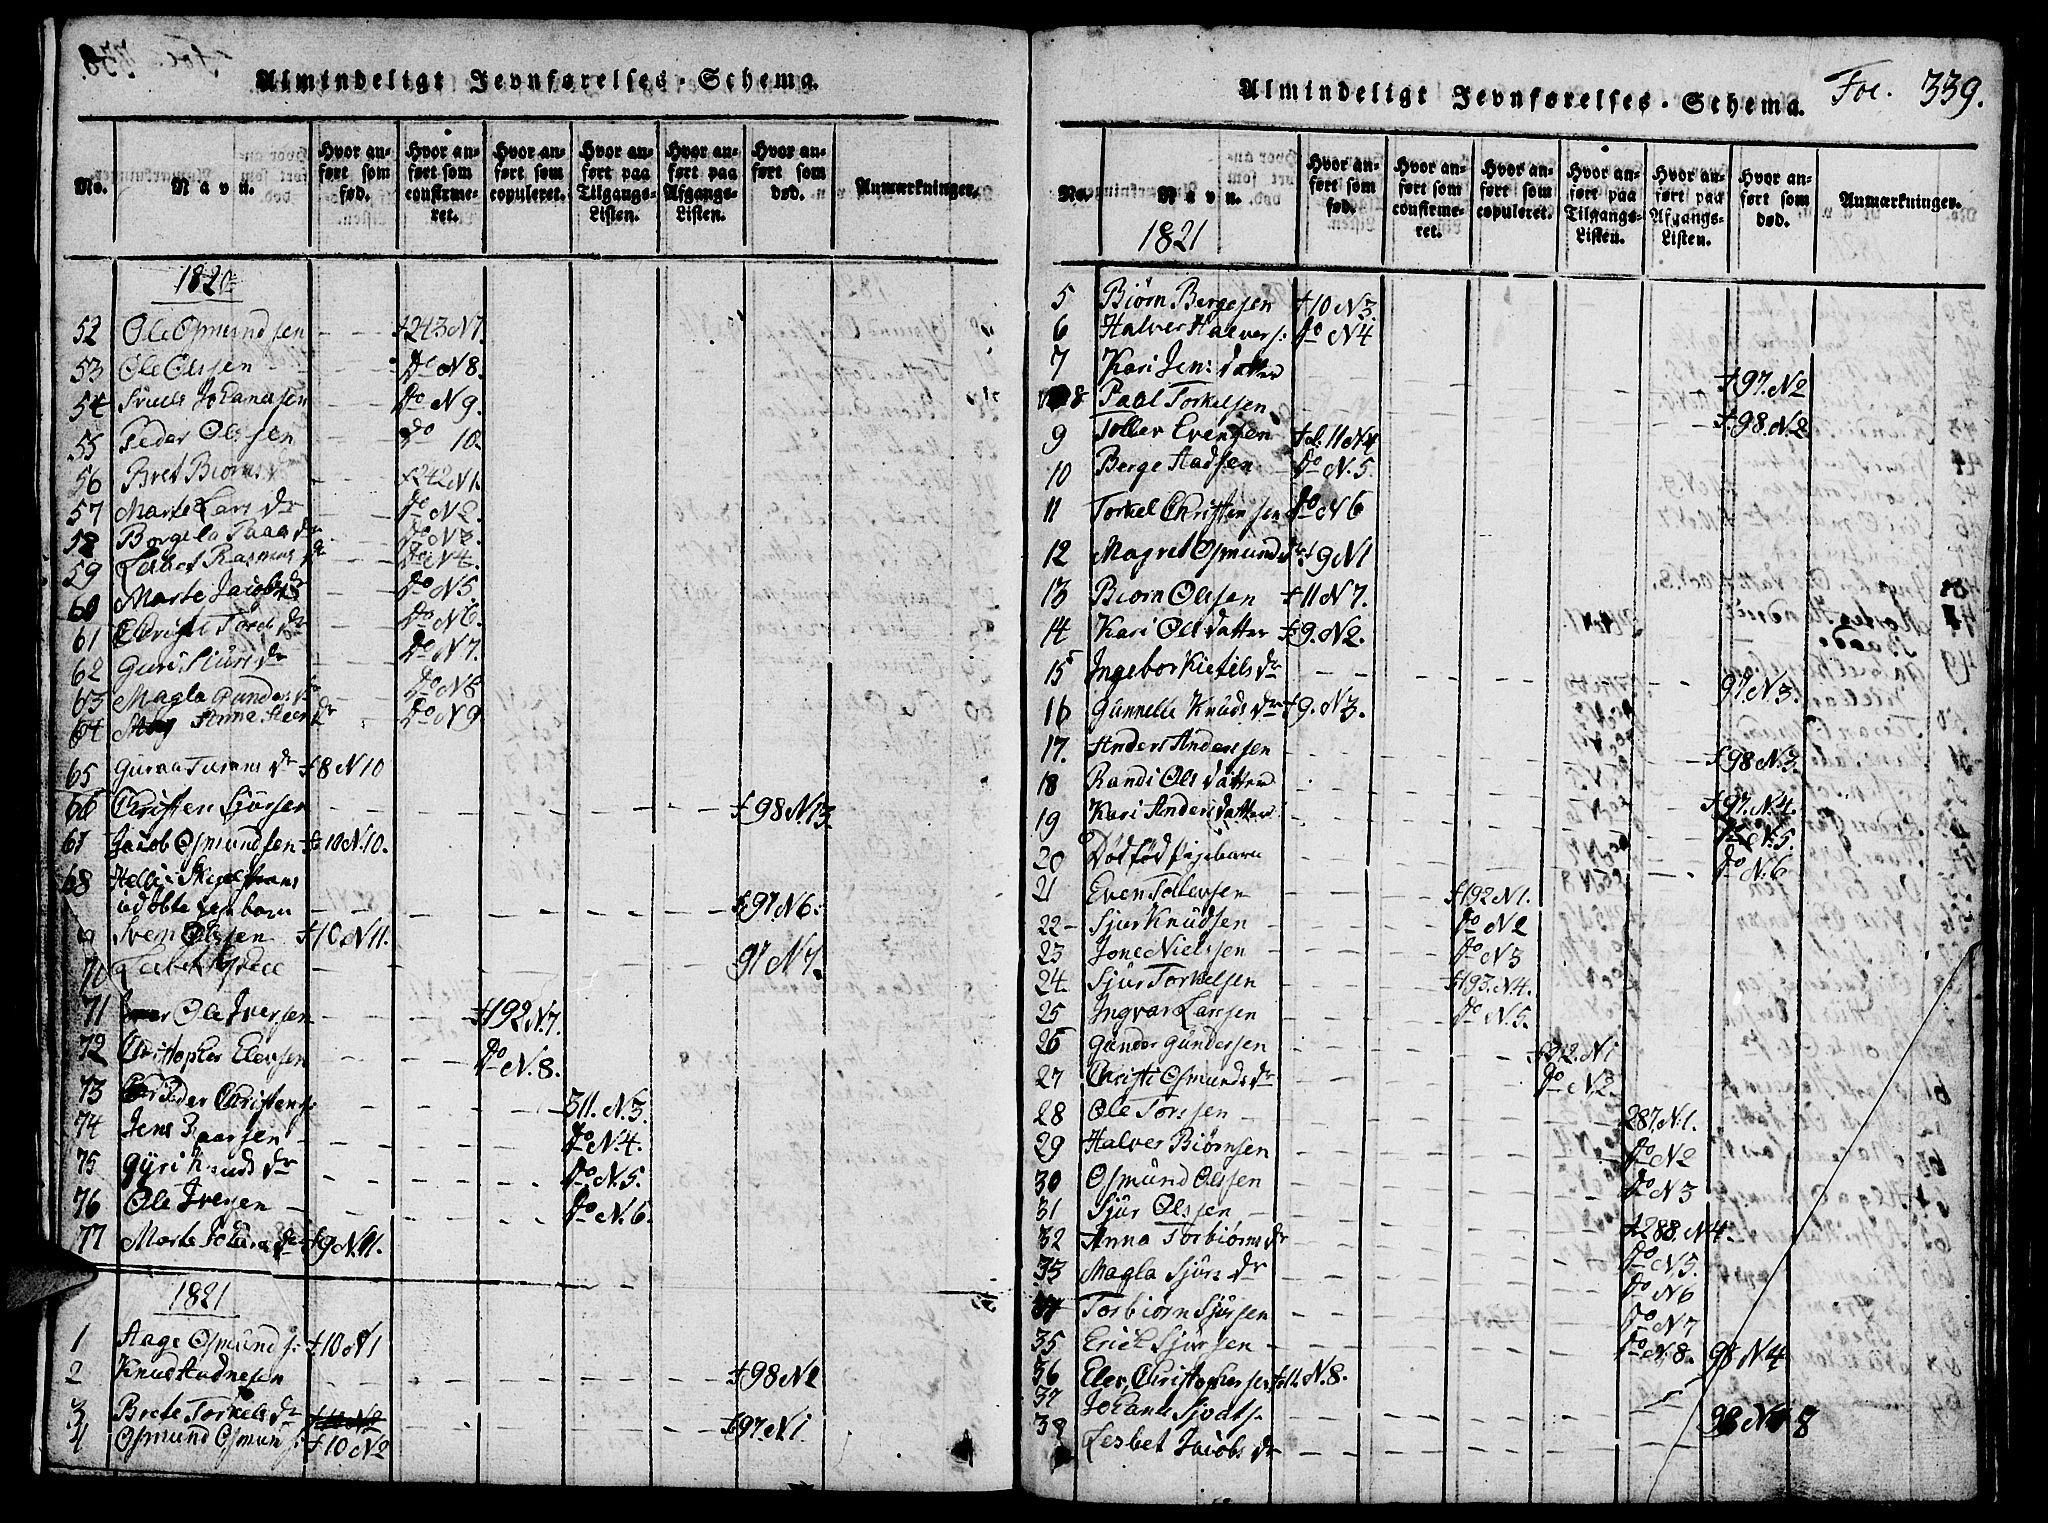 Almindeligt Jevnførelses-Schema.
No. Navn. Hvor anført som fød. Hvor anført som confirmeret. Hvor anført som copuleret. Hvor anført paa Tilgangs-Listen. Hvor anført paa Afgangs-Listen. Hvor anført som død. Anmærkninger.
1820
52 Ole Osmundsen f 243 N 7.
53 Ole Olssen do N 8.
54 Johannssen do N 9.
55 Peder Olssen do 10.
56 Bret Biørns f 242 N 1.
57 Marte Lars dr do N 2.
58 Borgela Paaa dr do N 3.
59 Rasmus dr do N 4.
60 Marte Jacobs dr do N 5.
61 Christi Tord dr do N 6.
62 Guri Siurs dr do N 7.
63 Magla Gunders dr do N 8
64 Anna Steen dr do N 9
65 Gurva dr f 8 N 10
66 Christen Sjørsen f 98 N. 13.
67 Jacob Osmundsen f 10 N. 10.
68 Helli
udøbte barn f 97 N 6.
Svem Olssen f 10 N 11.
70 97 N 7.
71 Ole Iversen f 192 N. 7.
72 Christopher Elevsen do N. 8.
73 Peder Christens: 311. N. 3.
74 Jens Baarsen do N. 4.
75 Gyri Knuds dr do N. 5.
76 Ole Iversen do N. 6.
77 Marte f 9 N. 11.
1821
1 Aage Osmunds: f 10 N 1
2 Knud Audnesen f 98 N 1
3 Brete Torkels dr f 97 N 1
4 Osmund Osmuns: f 10 N 2
Almindeligt Jevnførelses-Schema. Fol. 339.
No. Navn. Hvor anført som fød. Hvor anført som confirmeret. Hvor anført som copuleret. Hvor anført paa Tilgangs-Listen. Hvor anført paa Afgangs-Listen. Hvor anført som død. Anmærkninger.
1821
5 Biørn Bergesen f 10 N 3.
6 Halver Halvers: do N 4
7 Kari Jens datter f 97. N 2
8 Paal Torkelsen f. 98. N. 2
9 Toller Evensen f. 11 N 4
10 Berge Aadsen do N. 5.
11 Torkel Christensen do N 6
12 Magret Osmunds dr f 9 N 1
13 Biørn Olssen f 11 N 7.
14 Kari Ols datter f 9. N 2.
15 Ingebor Kietils dr 97 N 3.
16 Gunnelle Knuds dr f 9. N 3.
17. Anders Anderssen f 98 N. 3.
18 Randi Ols datter f 97. N. 4.
19 Kari Anders datter do N. 5.
20 Dødfød pigebarn do N. 6
21 Even Tollevsen f 192 N 1.
22 Sjur Knudsen do N 2
23 Jone Nielssen do N 3
24. Sjur Torkelsen f 193. N. 4.
25 Ingvar Larssen do N. 5.
26 Gunder Gundersen f 312. N 1
27 Christi Osmunds dr do N 2.
28 Ole Torssen 287. N. 1.
29 Halver Biørnsen do N 2
30 Osmund Olssen do N 3
31 Sjur Olssen f 288. N 4.
32 Anna Torbiørns dr do N 5.
33 Magla Sjurs dr do N 6
34 Torbiørn Sjursen do N 7
35 Erich Sjursen do N. 8.
36 Elev. Christophersen f 11. N. 8. 98 N 4
37 Johann
38 Lesbet Jacobs dr 98 N 8